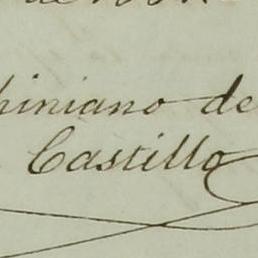 hiniano de
Castillo